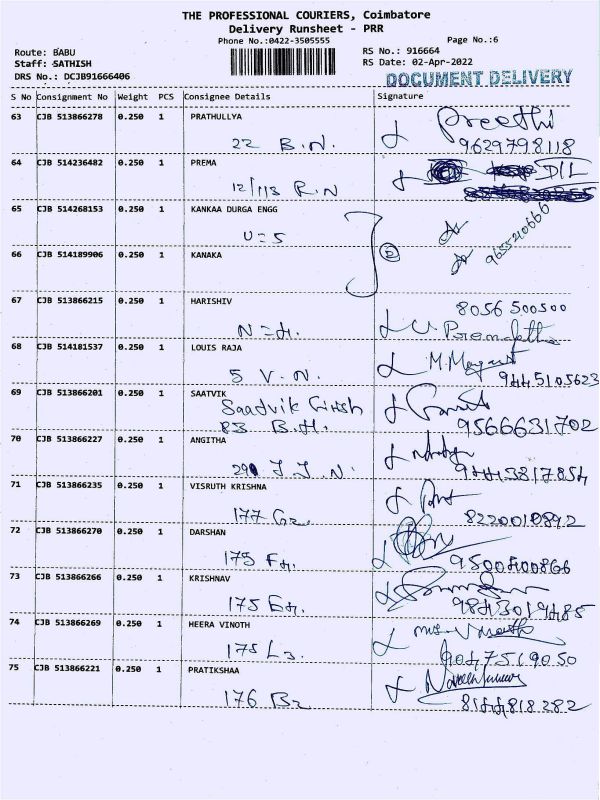 THE PROFESSIONAL COURIERS, Coimbatore
Delivery Runsheet - PRR
Phone No.:0422-3505555 Page No.:6
Route: BABU RS No.: 916664
Staff: SATHISH RS Date: 02-Apr-2022
DRS No.: DCJB91666406 DOCUMENT DELIVERY
S No Consignment No Weight PCS Consignee Details Signature
63 CJB 513866278 0.250 1 PRATHULLYA Preethi
22 B.N. 9629798118
64 CJB 514236482 0.250 1 PREMA D/L
12/113 R.N
65 CJB 514268153 0.250 1 KANKAA DURGA ENGG
U=5
66 CJB 514189906 0.250 1 KANAKA 2
67 CJB 513866215 0.250 1 HARISHIV 8056 500500
N=4.
68 CJB 514181537 0.250 1 LOUIS RAJA
5 V.N. 9445105623
69 CJB 513866201 0.250 1 SAATVIK
Saadvik Girish
83 B.H. 9566631702
70 CJB 513866227 0.250 1 ANGITHA
29 J.J.N. 9443817854
71 CJB 513866235 0.250 1 VISRUTH KRISHNA
177 G2. 8220010892
72 CJB 513866270 0.250 1 DARSHAN
175 F4. 9500400866
73 CJB 513866266 0.250 1 KRISHNAV
175 E4. 9843019485
74 CJB 513866269 0.250 1 HEERA VINOTH
175 L3. 9047519050
75 CJB 513866221 0.250 1 PRATIKSHAA
176 B2 8144818282